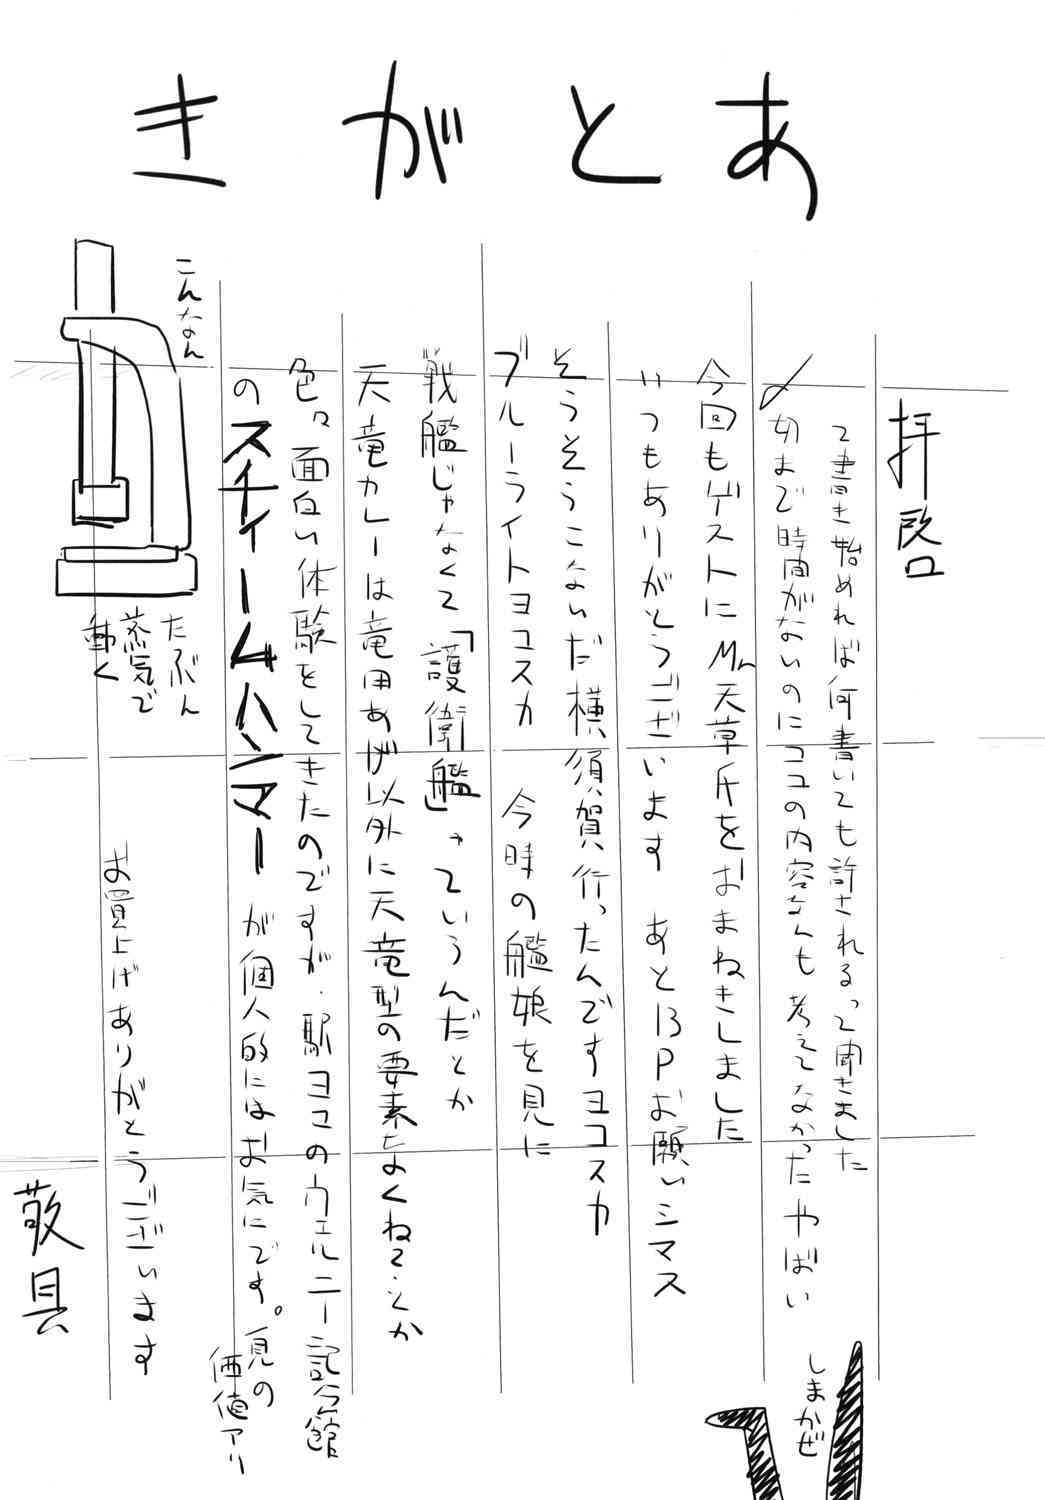 あとがき
拝啓
って書き始めれば何書いても許されるって聞きました
〆切まで時間がないのにココの内容なんも考えてなかったやばい
今回もゲストにMr.天草氏をおまねきしました
いつもありがとうございます あと13Pお願いシマス
そうそうこないだ横須賀行ったんですヨコスカ
ブルーライトヨコスカ 今時の艦娘を見に
戦艦じゃなくて「護衛艦」っていうんだとか
天竜カレーは竜田あげ以外に天竜型の要素なくねて・とか
色々面白い体験をしてきたのですが、駅ヨコのヴェルニー記念館
のスチィームハンマーが個人的にはお気にです。見の
価値アリ
こんなん
たぶん
蒸気で
動く
お買上げありがとうございます
敬具
しまかぜ